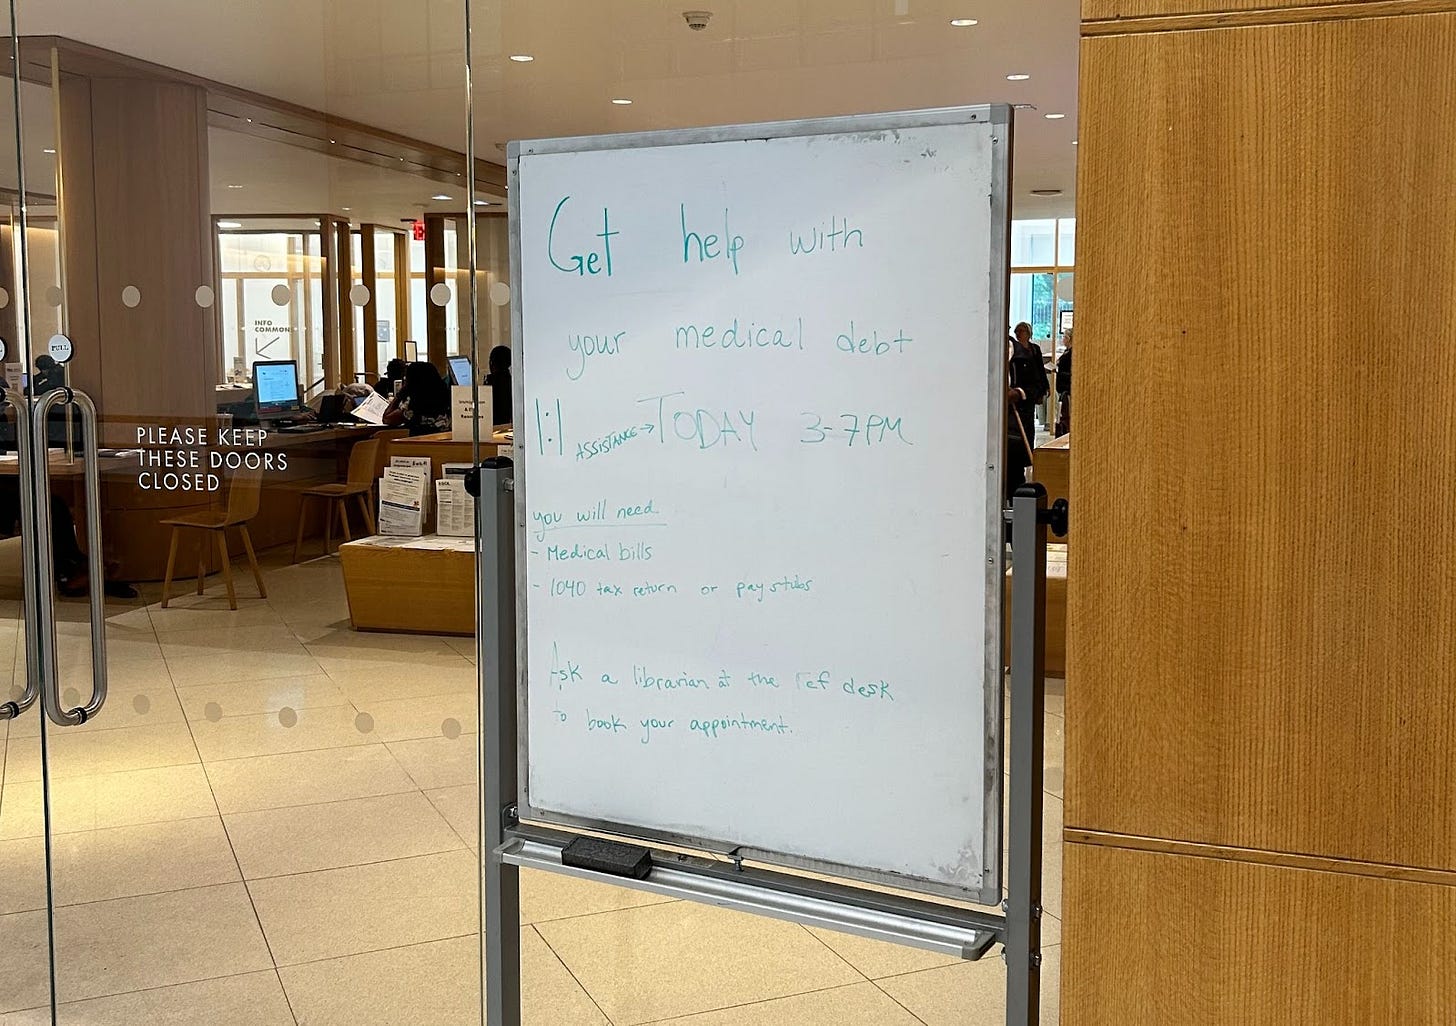 Get help with
your medical debt
1:1 ASSISTANCE → TODAY 3-7PM
you will need
- Medical bills
- 1040 tax return or pay stubs
Ask a librarian at the ref desk
to book your appointment.
PLEASE KEEP
THESE DOORS
CLOSED
PULL
INFO
COMMONS